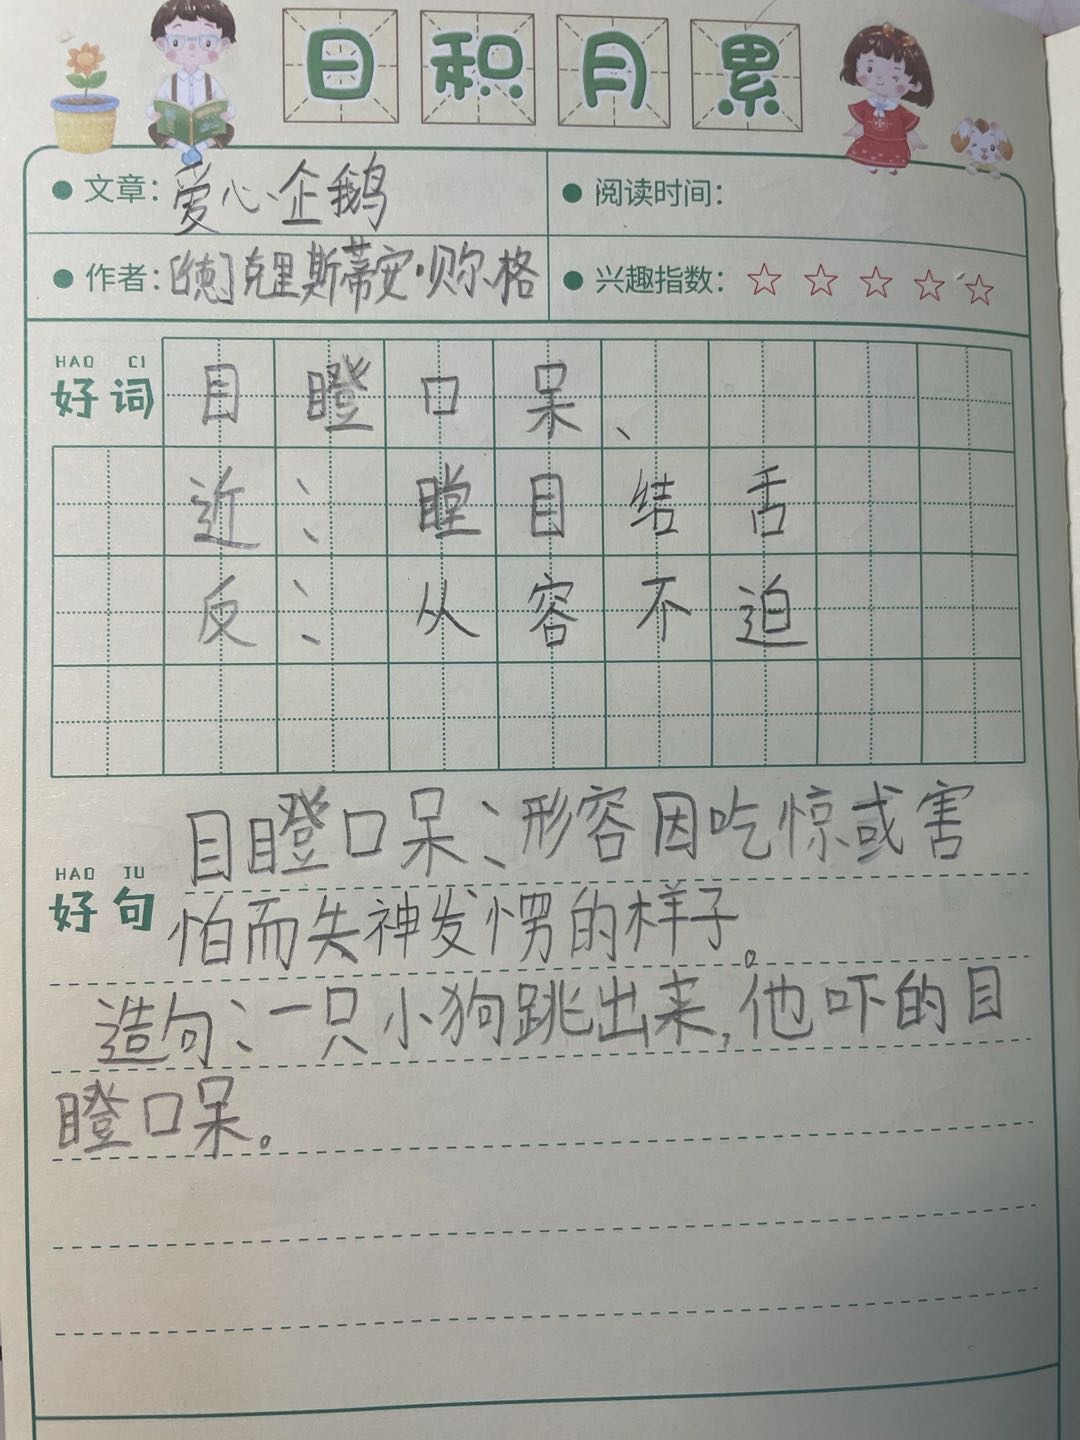 日积月累
文章：爱心企鹅
阅读时间：
作者：[德]克里斯蒂安·贝尔格
兴趣指数：☆☆☆☆☆
HAO CI
好词
目瞪口呆、
近：瞠目结舌
反：从容不迫
HAO JU
好句
目瞪口呆：形容因吃惊或害
怕而失神发愣的样子。
造句：一只小狗跳出来，他吓的目
瞪口呆。